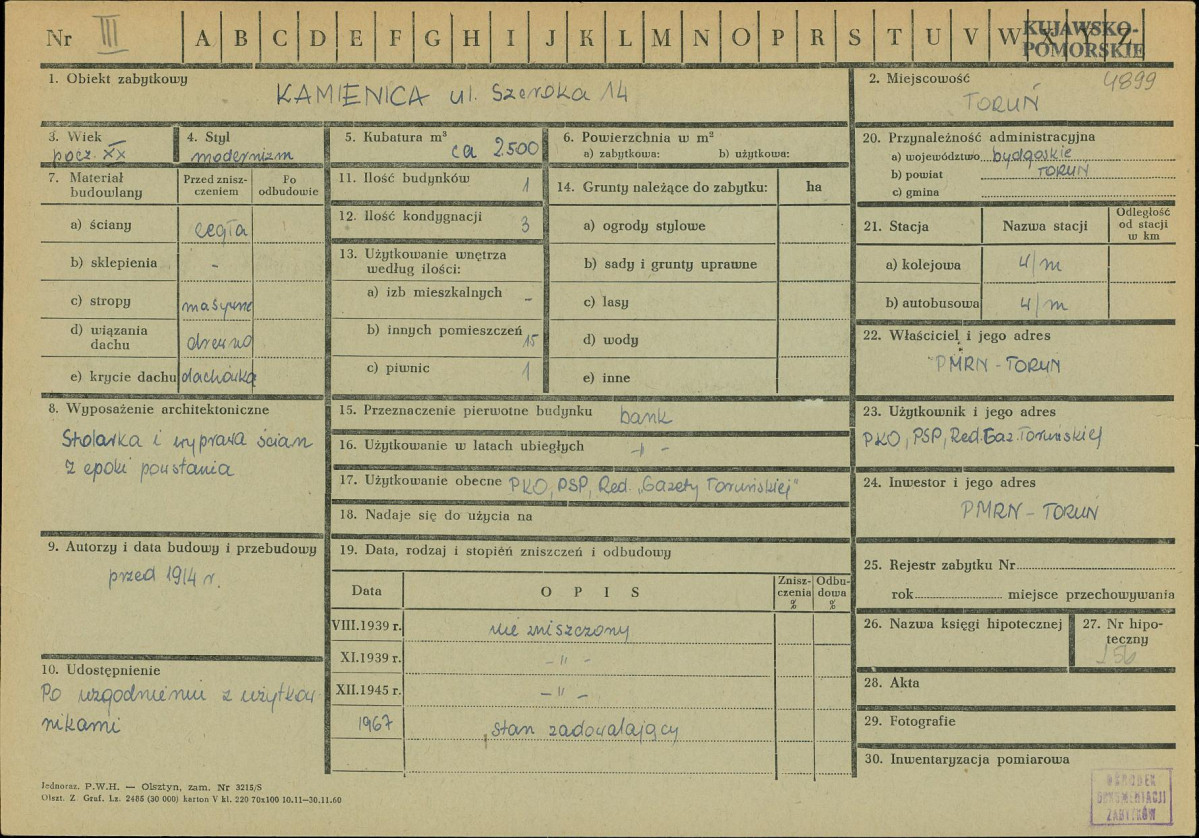 Nr III A B C D E F G H I J K L M N O P R S T U V W X Y Z
KUJAWSKO-
POMORSKIE
1. Obiekt zabytkowy
KAMIENICA ul. Szeroka 14
2. Miejscowość
4899
TORUŃ
3. Wiek
pocz. XX
4. Styl
modernizm
5. Kubatura m³
ca 2500
6. Powierzchnia w m²
a) zabytkowa: b) użytkowa:
20. Przynależność administracyjna
a) województwo bydgoskie
b) powiat TORUŃ
c) gmina
7. Materiał
budowlany
Przed znisz-
czeniem
Po
odbudowie
a) ściany cegła
b) sklepienia -
c) stropy masywne
d) wiązania
dachu drewno
e) krycie dachu dachówka
11. Ilość budynków 1
12. Ilość kondygnacji 3
13. Użytkowanie wnętrza
według ilości:
a) izb mieszkalnych -
b) innych pomieszczeń 15
c) piwnic 1
14. Grunty należące do zabytku: ha
a) ogrody stylowe
b) sady i grunty uprawne
c) lasy
d) wody
e) inne
21. Stacja Nazwa stacji
Odległość
od stacji
w km
a) kolejowa 4/m
b) autobusowa 4/m
22. Właściciel i jego adres
PMRN - TORUŃ
8. Wyposażenie architektoniczne
Stolarka i wyprawa ścian
z epoki powstania
15. Przeznaczenie pierwotne budynku bank
16. Użytkowanie w latach ubiegłych -"-
17. Użytkowanie obecne PKO, PSP, Red. „Gazety Toruńskiej"
18. Nadaje się do użycia na
23. Użytkownik i jego adres
PKO, PSP, Red. Gaz. Toruńskiej
24. Inwestor i jego adres
PMRN - TORUŃ
9. Autorzy i data budowy i przebudowy
przed 1914 r.
19. Data, rodzaj i stopień zniszczeń i odbudowy
Data O P I S
Znisz-
czenia
%
Odbu-
dowa
%
VIII.1939 r. nie zniszczony
XI.1939 r. - " -
XII.1945 r. - " -
1967 stan zadowalający
25. Rejestr zabytku Nr
rok miejsce przechowywania
26. Nazwa księgi hipotecznej
27. Nr hipo-
teczny
156
10. Udostępnienie
Po uzgodnieniu z użytkow-
nikami
28. Akta
29. Fotografie
30. Inwentaryzacja pomiarowa
Jednoraz. P.W.H. — Olsztyn, zam. Nr 3215/S
Olszt. Z. Graf. Lz. 2485 (30 000) karton V kl. 220 70x100 10.11—30.11.60
OŚRODEK
DOKUMENTACJI
ZABYTKÓW